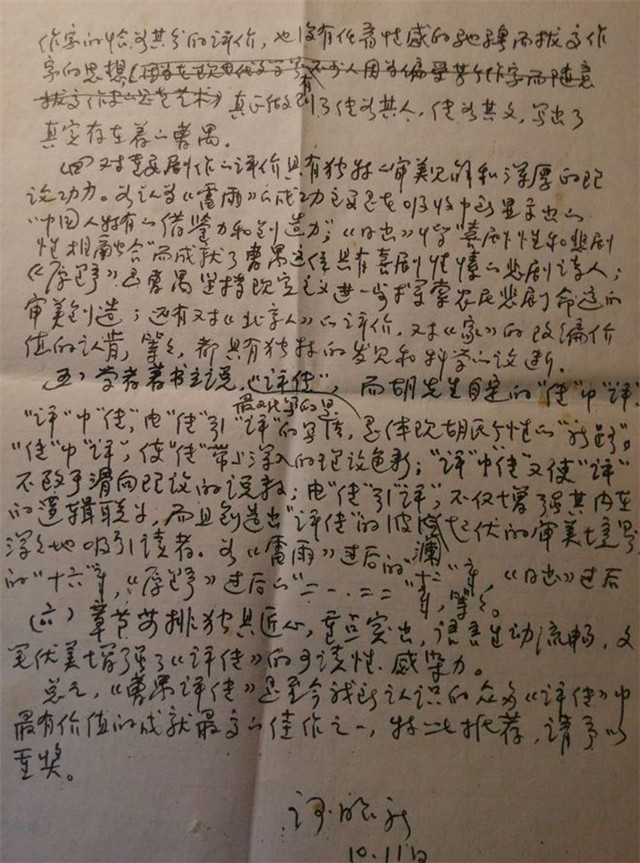 作家的恰如其分的评价，也没有任着性感的驰骋而拔高作
家的思想
真正做到了传如其人，传如其文，写出了
真实存在着的曹禺。
(四)对重要剧作的评价具有独特的审美见解和深厚的理
论功力。如认为《雷雨》的成功主要是在吸收中所显示出的
"中国人特有的借鉴力和创造力"；《日出》中的"喜剧性和悲剧
性相融合"而成就了曹禺这位具有喜剧性情的悲剧诗人；
《原野》是曹禺坚持现实主义进一步探索农民悲剧命运的
审美创造；还有对《北京人》的评价，对《家》的改编价
值的认肯，等等，都具有独特的发见和科学的论断。
(五)学者著书立说，《评传》，而胡先生自定的"传"中"评"
"评"中"传"，由"传"引"评"的写法，是体现胡氏个性的"新路"。
"传"中"评"，使"传"带上深入的理论色彩；"评"中"传"又使"评"
不致于滑向理论的说教；由"传"引"评"，不仅增强其内在
的逻辑联系，而且创造出"评传"的波澜起伏的审美境界
深深地吸引读者。如《雷雨》过后的
的"十六"章，《原野》过后的"二一·二二"章，《日出》过后
(六)章节安排独具匠心，重点突出，语言生动流畅，文
笔优美增强了《评传》的可读性、感染力。
总之，《曹禺评传》是至今我所认识的众多《评传》中
最有价值的成就最高的佳作之一，特此推荐，请予以
重奖。
许
10.11日